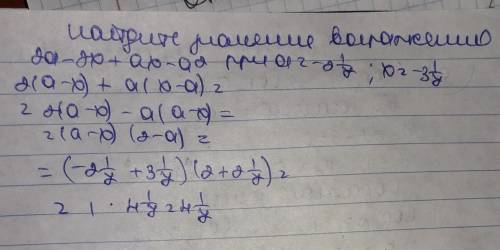 найдите значение выражения
2a-2x+ax-a2 при a=-2 1/2; x=-3 1/2
2(a-x)+a(x-a)=
=2(a-x)-a(a-x)=
=(a-x)(2-a)=
=(-2 1/2+3 1/2)(2+2 1/2)=
=1·4 1/2=4 1/2